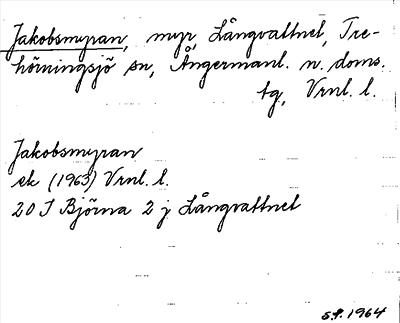 Jakobsmyran, myr, Långvattnet, Tre-
hörningsjö sn, Ångermanl. n. doms.
tg, Vrnl. l.
Jakobsmyran
ek (1963) Vrnl. l.
20 I Björna 2 j Långvattnet
s.f. 1964